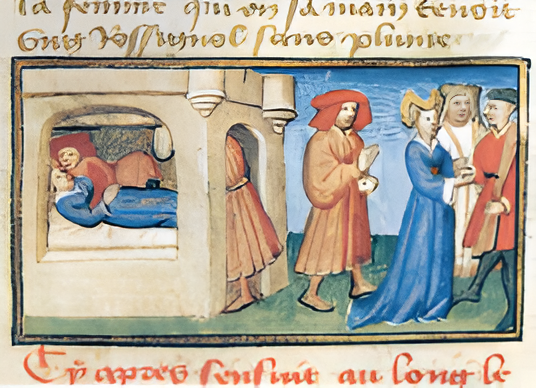 la femme qui en sa main tenoit
Ung Rossignol sans plume
Cy apres sensuit au long le